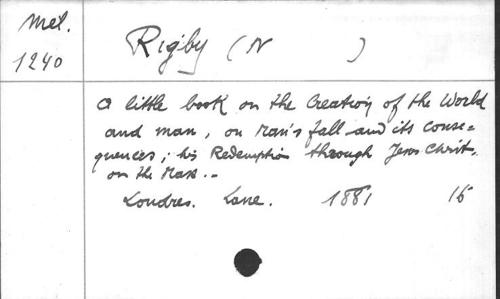 Mél.
1240
Rigby (N )
a little book on the Creation of the World
and man, on man's fall and its conse=
quences; his Redemption through Jesus Christ.
on the Mass.-
Londres. Lane. 1881 16